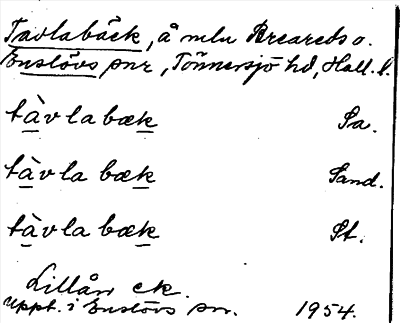 Tavlabäck, å mln Breareds o.
Enslövs snr, Tönnersjö hd, Hall. l.
tàvla bæk Sa.
tàvla bæk Sand.
tàvla bæk St.
Lillån ek.
Uppt. i Enslövs sn. 1954.